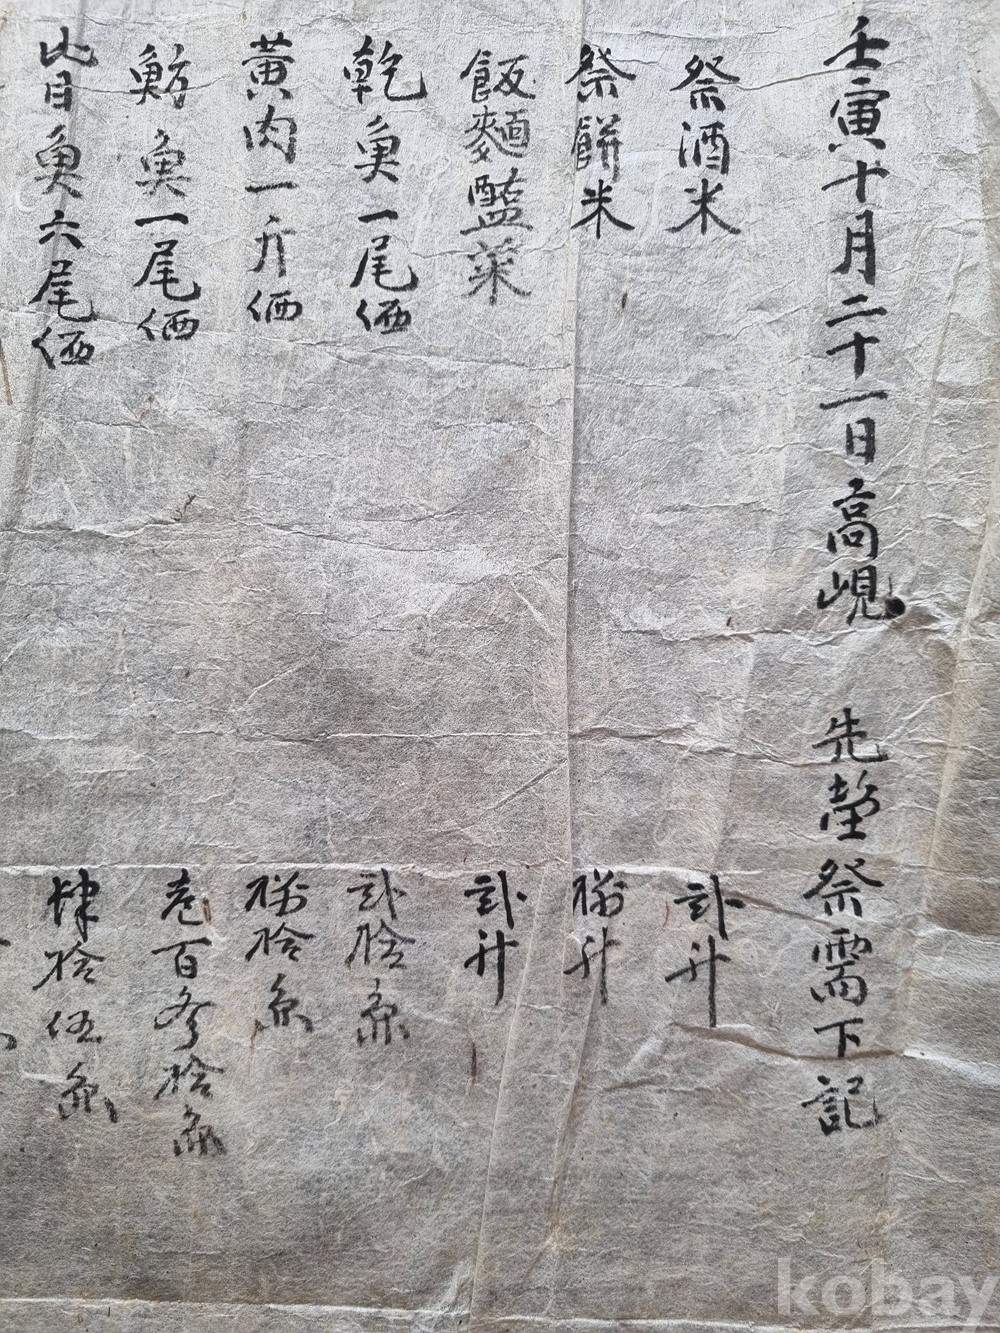 壬寅十月二十一日高峴 先塋祭需下記
祭酒米 弍升
祭餠米 捌升
飯麵醢菜 弍升
乾魚一尾価 弍拾戔
黃肉一斤価 捌拾戔
魴魚一尾価 壱百參拾戔
比目魚六尾価 肆拾伍戔
kobay